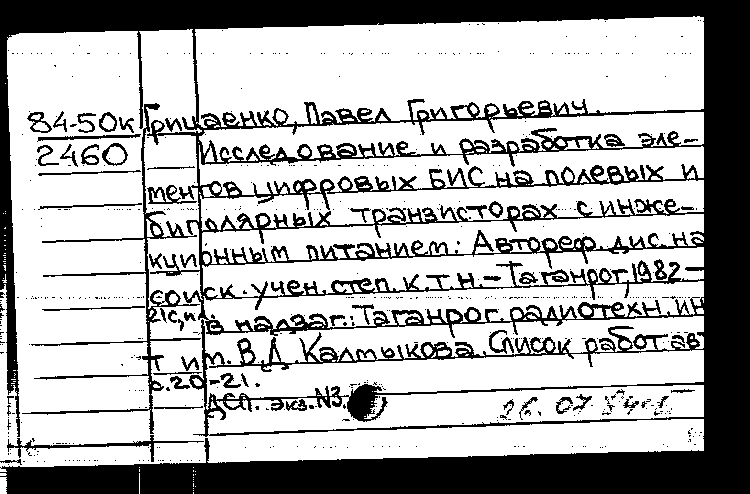 84-50к Грицаенко, Павел Григорьевич.
2460 Исследование и разработка эле-
ментов цифровых БИС на полевых и
биполярных транзисторах с инже-
кционным питанием: Автореф. дис. на
соиск. учен. степ. к.т.н. - Таганрог, 1982 -
21с, ил.
В надзаг.: Таганрог. радиотехн. ин
т им. В.Д. Калмыкова. Список работ авт
с. 20-21.
ДСП. экз. N3.
26. 07 84